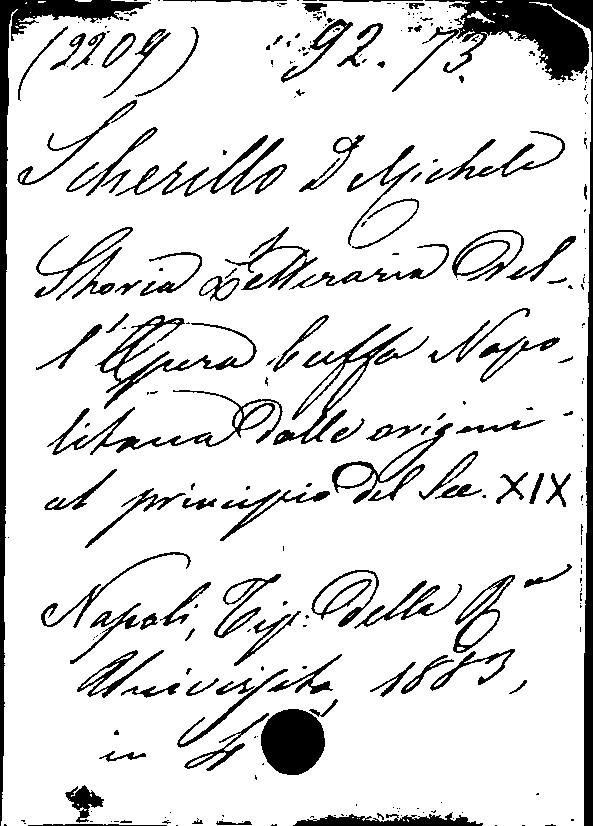 (2209) 92.73
Scherillo D Michele
Storia Letteraria del-
l'Opera buffa Napo-
litana dalle origini
al principio del Sec. XIX
Napoli, Tip: della R.a
Università, 1883,
in 4°